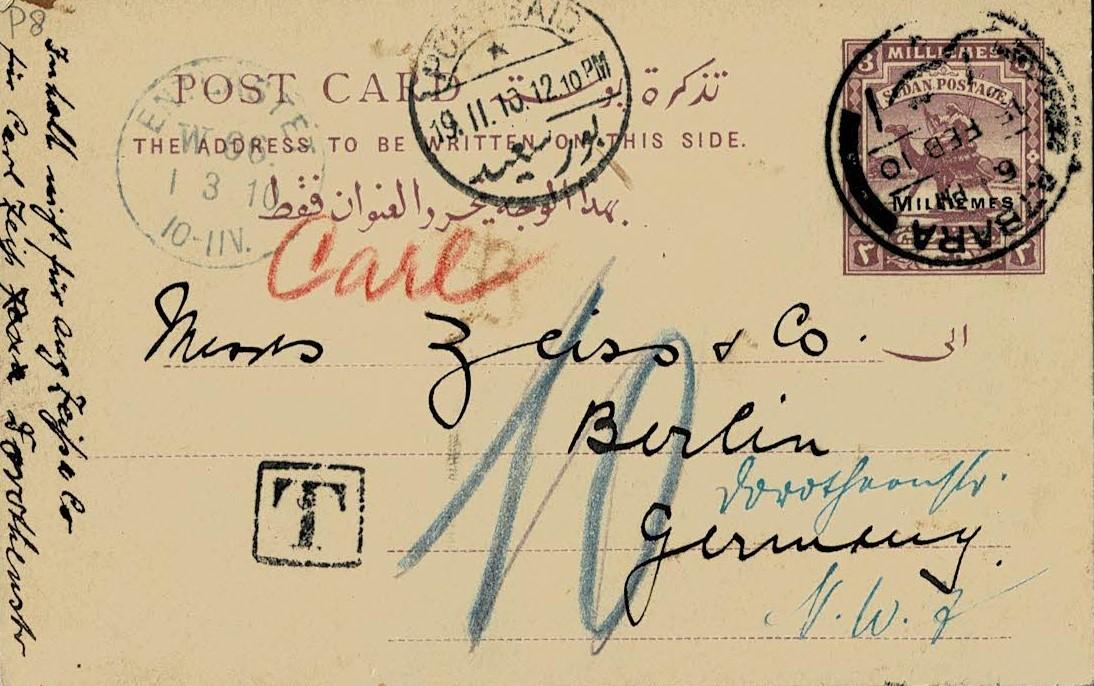 P8
POST CARD تذكرة بوستة
THE ADDRESS TO BE WRITTEN ON THIS SIDE.
بهذا الوجه يحرر العنوان فقط
PORT SAID
19.II.10.12.10PM
بور سعيد
W
1 3 10
10-11V.
3 MILLIEMES
SUDAN POSTAGE
MILLIEMES
٣ ٣
BARA
FEB 10
Carl
Messrs Zeiss & Co. الى
Berlin
Dorotheenstr.
Germany.
N.W. 7
10
T
Inhalt nicht für Aug Zeiss & Co
für Carl Zeiss Jena Dorotheenstr